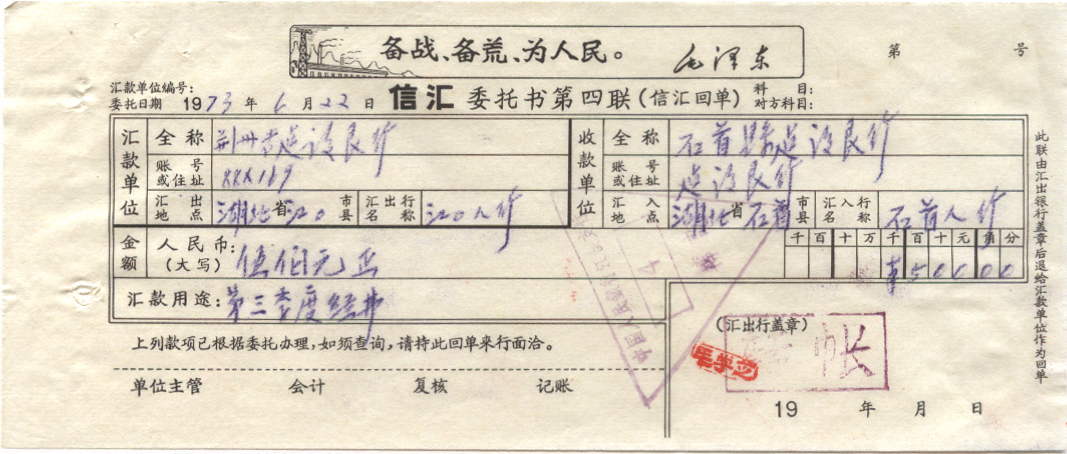 备战、备荒、为人民。 毛泽东
第 号
汇款单位编号:
委托日期 1973年6月22日 信汇 委托书第四联(信汇回单) 科 目: 对方科目:
汇款单位 全称 荆州 建设民行 收款单位 全称 石首县 建设民行
账号或住址 88X169 账号或住址 建设民行
汇出地点 湖北省江〇 市县 汇出行名称 江〇人行 汇入地点 湖北省石首 市县 汇入行名称 石首人行
金额 人民币:(大写) 伍佰元正 千百十万千百十元角分 50000
汇款用途: 第三季度经费
上列款项已根据委托办理,如须查询,请持此回单来行面洽。
(汇出行盖章)
单位主管 会计 复核 记账
19 年 月 日
此联由汇出银行盖章后退给汇款单位作为回单
中国人民